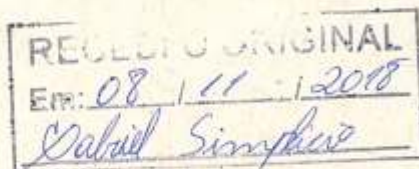 RECEBI O ORIGINAL
Em: 08 / 11 / 2018
Gabriel Simplicio